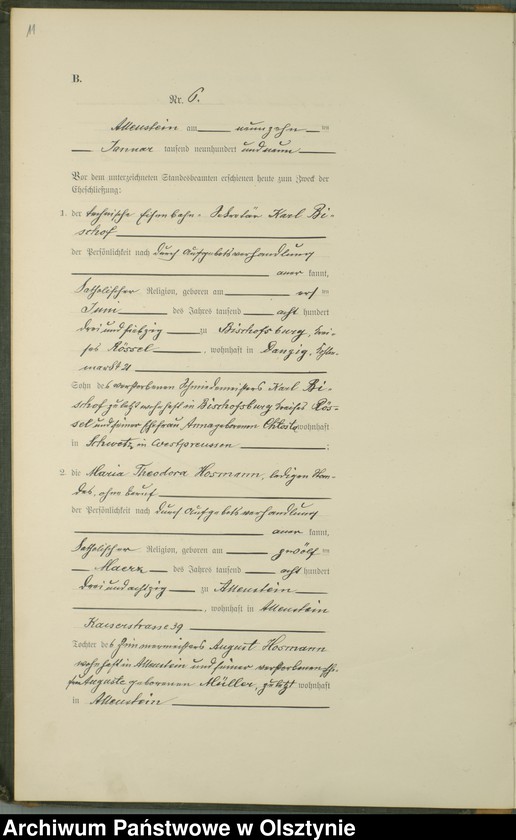 11
B.
Nr. 6.
Allenstein am neunzehn ten
Januar tausend neunhundert und neun
Vor dem unterzeichneten Standesbeamten erschienen heute zum Zweck der
Eheschließung:
1. der technische Eisenbahn-Sekretär Karl Bi-
schof
der Persönlichkeit nach durch Aufgebotsverhandlung
aner kannt,
katholischer Religion, geboren am ers ten
Juni des Jahres tausend acht hundert
drei und siebzig zu Bischofsburg, Krei-
ses Rössel, wohnhaft in Danzig,
markt 21
Sohn des verstorbenen Schmiedemeisters Karl Bi-
schof zuletzt wohnhaft in Bischofsburg Kreises Rös-
sel und seiner Ehefrau Anna geborenen wohnhaft
in Schwetz in Westpreussen;
2. die Maria Theodora Hosmann, ledigen Stan-
des, ohne Beruf
der Persönlichkeit nach durch Aufgebotsverhandlung
aner kannt,
katholischer Religion, geboren am zwölf ten
Maerz des Jahres tausend acht hundert
drei und achtzig zu Allenstein
, wohnhaft in Allenstein
Kaiserstrasse 39
Tochter des Zimmermeisters August Hosmann
wohnhaft in Allenstein und seiner verstorbenen Ehe-
frau Auguste geborenen Müller, zuletzt wohnhaft
in Allenstein
Archiwum Państwowe w Olsztynie